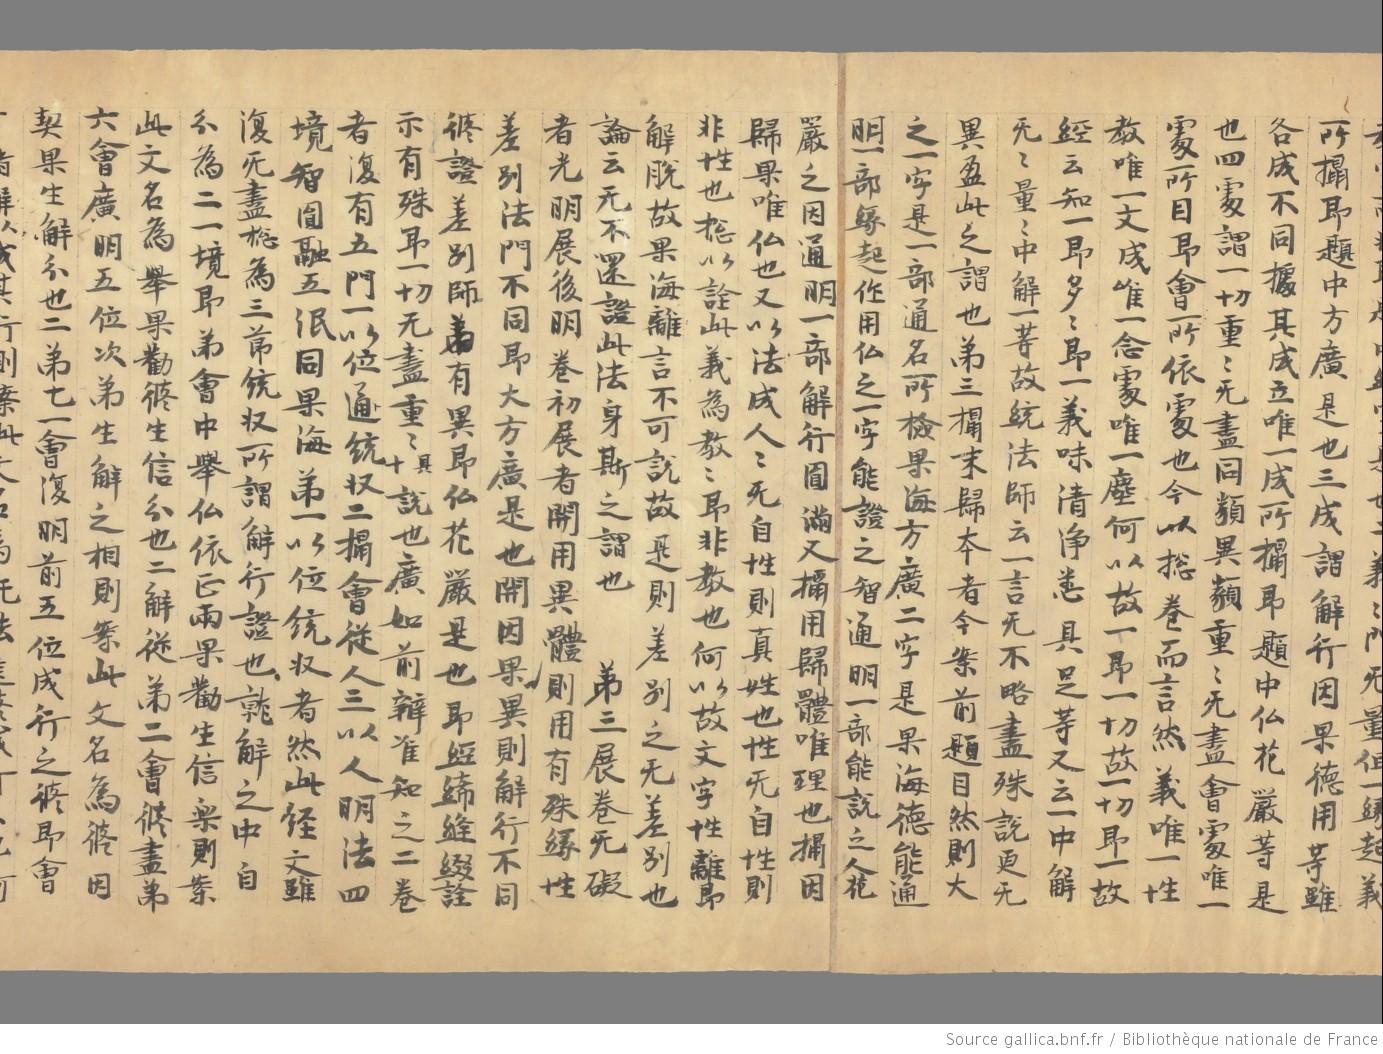 所攝即題中方廣是也三成謂解行因果德用等雖
各成不同據其成立唯一成所攝即題中仏花嚴等是
也四處謂一切重〻无盡同類異類重〻无盡會處唯一
處所目即會一所依處也今以捴卷而言然義唯一性
教唯一文成唯一念處唯一塵何以故一即一切故一切即一故
經云知一即多〻即一義味清淨悉具足等又云一中解
无〻量〻中解一等故統法師云一言无不略盡殊說更无
異盈此之謂也弟三攝末歸本者今案前題目然則大
之一字是一部通名所檢果海方廣二字是果海德能通
明一部縁起作用仏之一字能證之智通明一部能說之人花
嚴之因通明一部解行圓滿又攝用歸體唯理也攝因
歸果唯仏也又以法成人〻无自性則真姓也性无自性則
非性也捴以詮此義為教〻即非教也何以故文字性離即
解脫故果海離言不可說故是則差別之无差別也
論云无不還證此法身斯之謂也 弟三展卷无礙
者光明展後明卷初展者開用異體則用有殊縁性
差別法門不同即大方廣是也開因果異則解行不同
脩證差別師弟有異即仏花嚴是也即經締縫綴詮
示有殊即一切无盡重〻十具說也廣如前辯准知之二卷
者復有五門一以位通統収二攝會從人三以人明法四
境智圓融五泯同果海弟一以位統収者然此経文雖
復无盡捴為三節統収所謂解行證也就解之中自
分為二一境即弟會中舉仏依正兩果勸生信樂則案
此文名為舉果勸脩生信分也二解從弟二會脩盡弟
六會廣明五位次弟生解之相則案此文名為脩因
契果生解分也二弟七一會復明前五位成行之脩即會